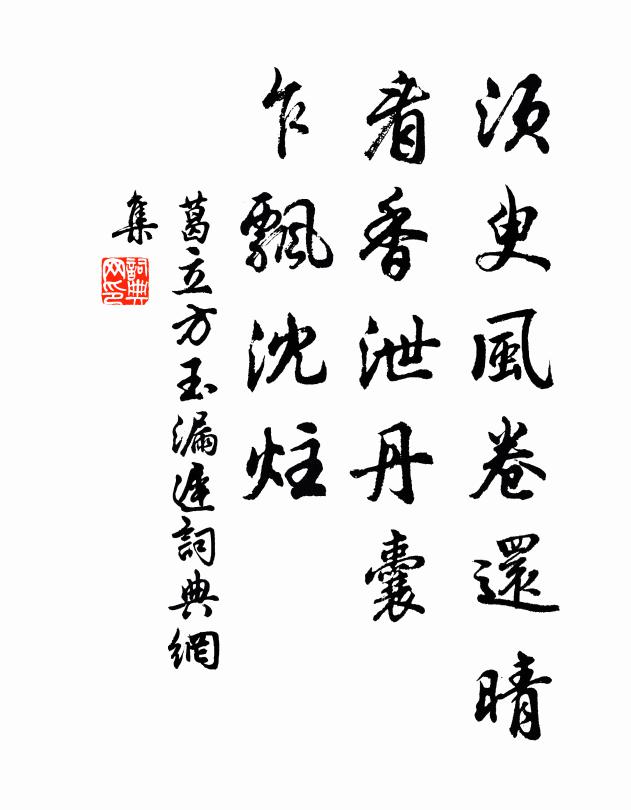 須臾風卷還晴
看香泄丹囊
乍飄沈炷
葛立方玉漏遲詞典網
集
詞典網印